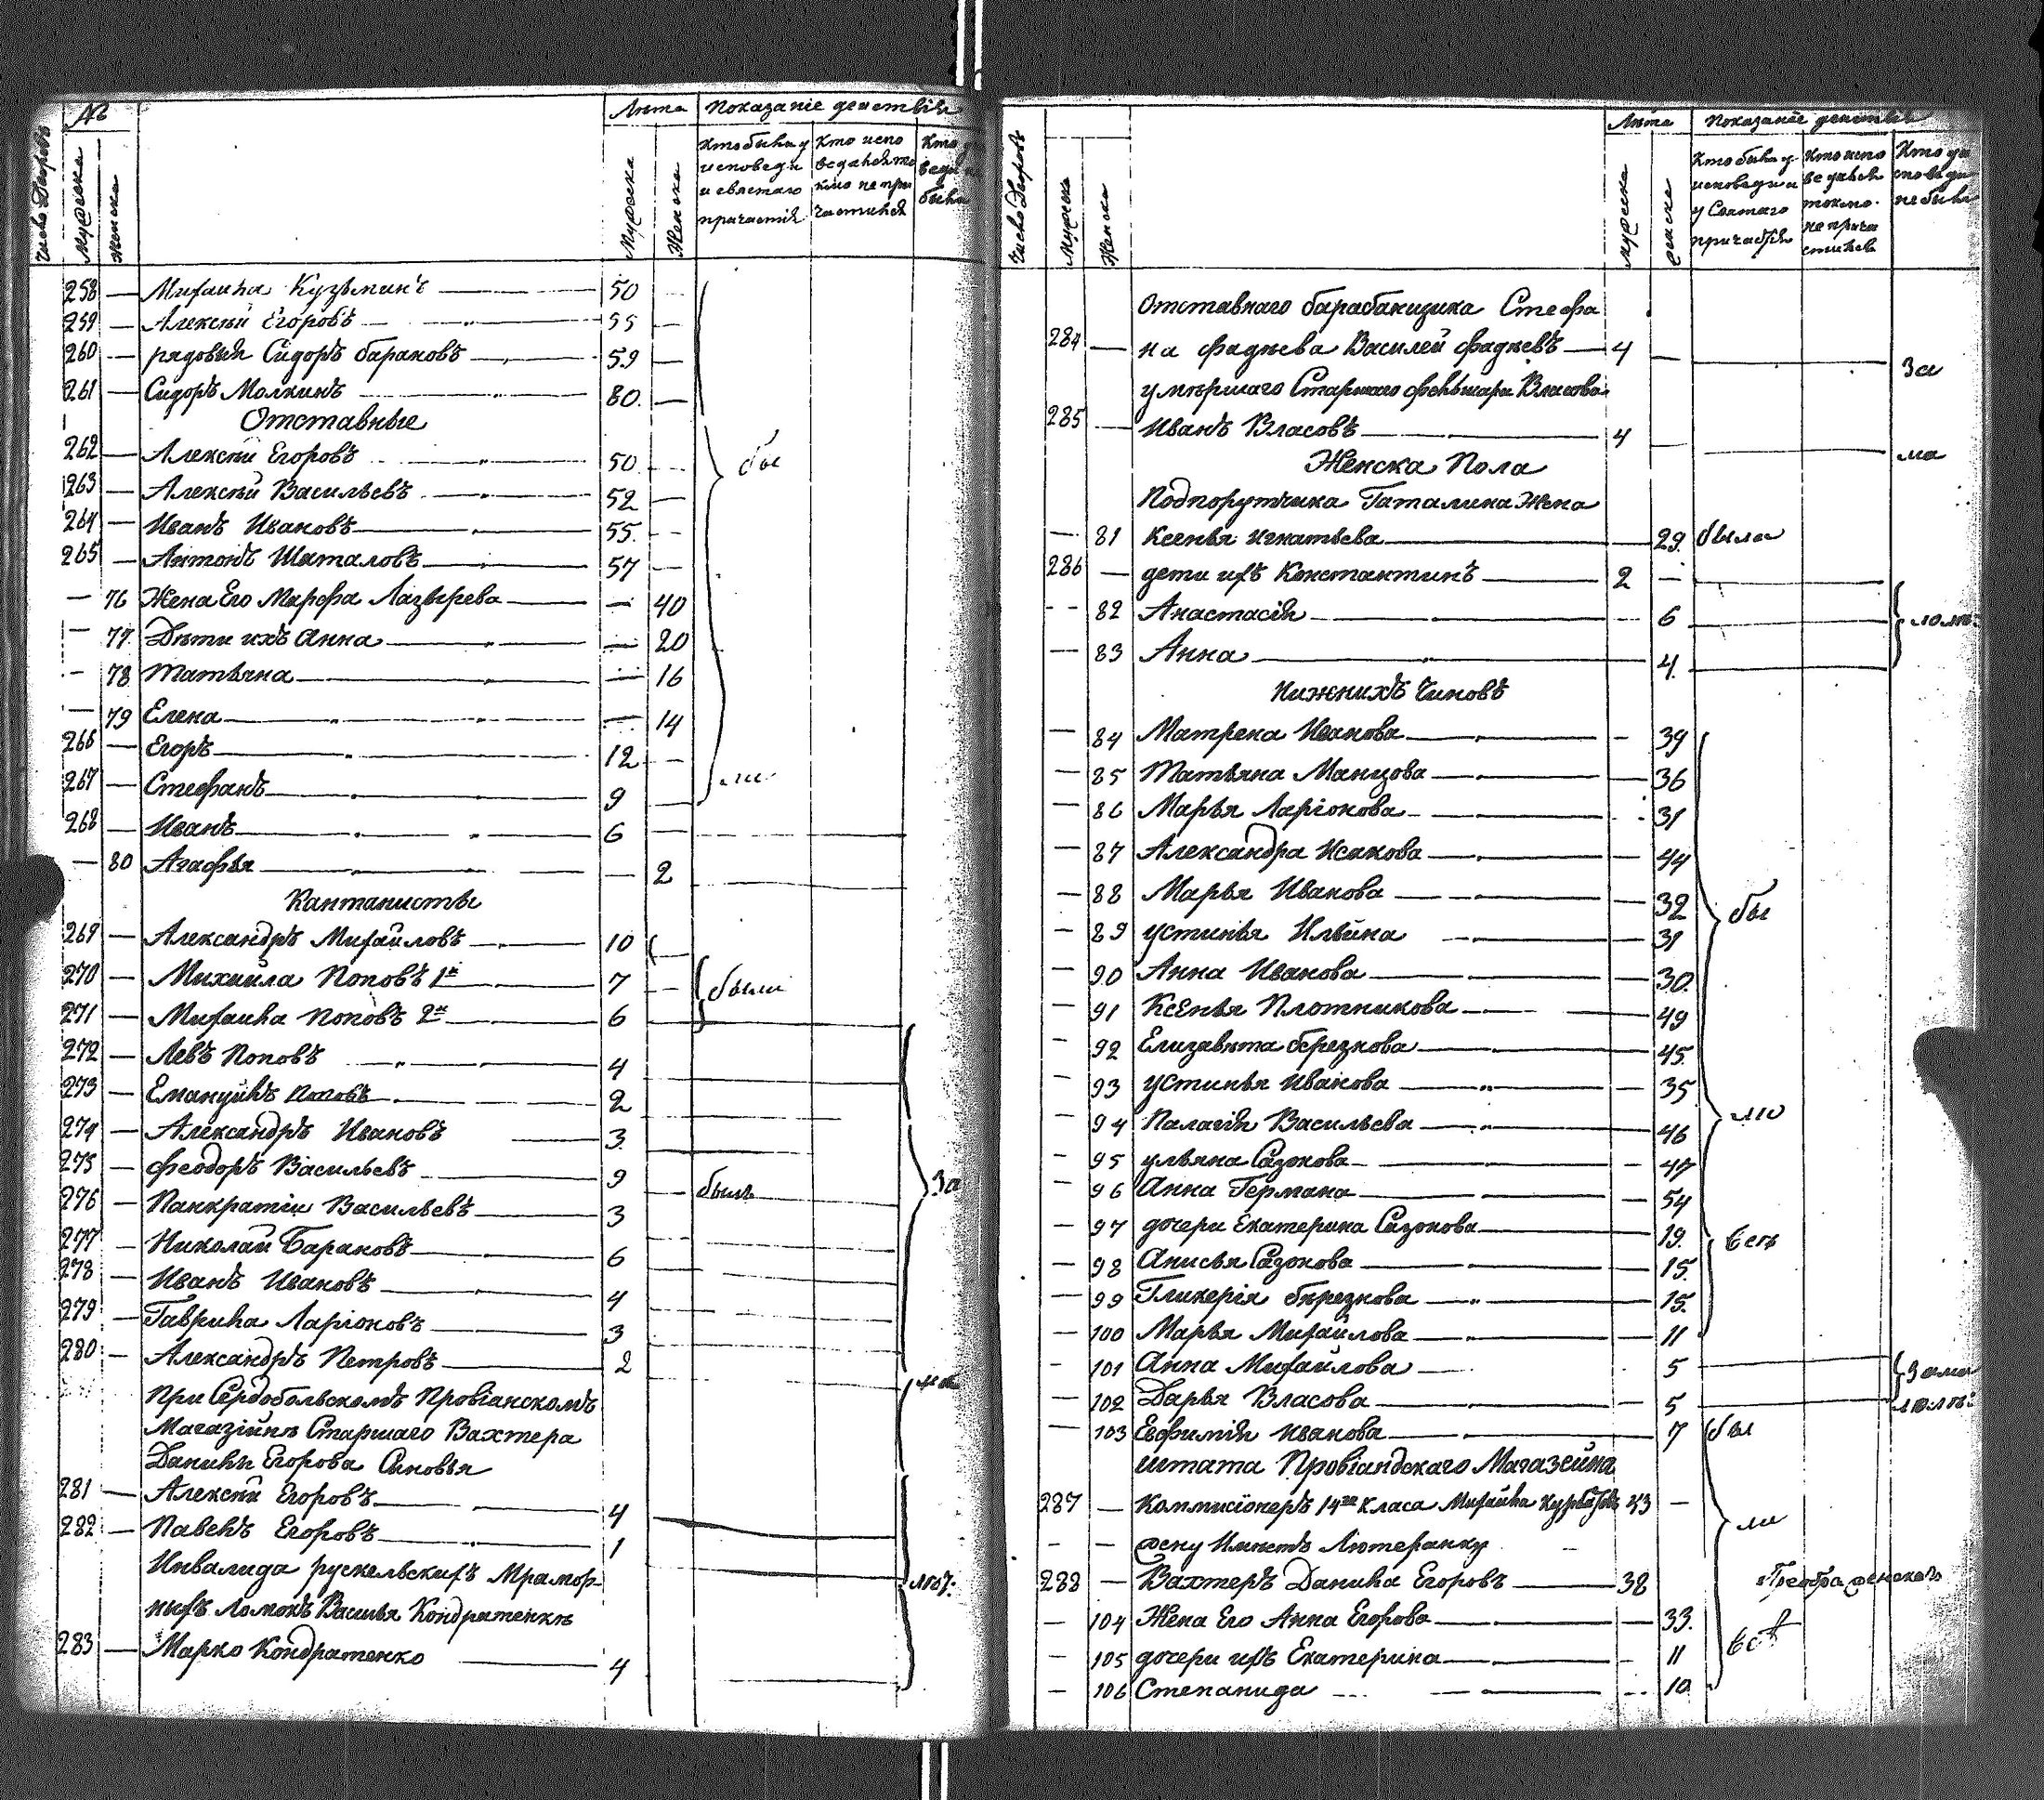 № Лѣта Показаніе действія
Число Дворовъ Мужеска Женска Мужеска Женска Кто были у исповеди и святаго причастія Кто испо ведался то кмо не при частился
258 — Михаила Кузьминъ — 50
259 — Алексѣй Егоровъ — 55 —
260 — рядовыя Сидоръ барановъ — 59 —
261 — Сидоръ Молкинъ — 80 —
Отставные
262 — Алексѣй Егоровъ — 50 — бы
263 — Алексѣй Васильевъ — 52 —
264 — Иванъ Ивановъ — 55 —
265 — Антонъ Шаталовъ — 57 —
— 76 Жена Его Марфа Лазырева — 40
— 77 Дѣти ихъ Анна — 20
— 78 Татьяна — 16
— 79 Елена — 14
266 — Егоръ — 12 —
267 — Стефанъ — 9 — ли
268 — Иванъ — 6 —
— 80 Агафья — 2
Кантанисты
269 — Александръ Михайловъ — 10 —
270 — Михаила Поповъ 1й — 7 — были
271 — Михаила Поповъ 2й — 6 —
272 — Левъ Поповъ — 4
273 — Емануилъ Поповъ — 2
274 — Александръ Ивановъ — 3
275 — Феодоръ Васильевъ — 9 — былъ За
276 — Панкратіи Васильевъ — 3
277 — Николай Барановъ — 6
278 — Иванъ Ивановъ — 4
279 — Гаврила Ларіоновъ — 3
280 — Александръ Петровъ — 2
При Сердобольскомъ Провіанскомъ
Магазійнѣ Старшаго Вахтера
Данилы Егорова Сыновья
281 — Алексѣй Егоровъ — 4
282 — Павелъ Егоровъ — 1
Инвалида рускельскихъ Мрамор-
ныхъ ломокъ Василья Кондратенкѣ
283 — Марко Кондратенко — 4
Лѣта Показаніе действія
Число Дворовъ Мужеска Женска мужеска женска Кто были у исповеди и у Святаго причастія Кто испо ведался токмо не прича стился Кто у и споведи не были
Отставнаго барабанщика Стефа
284 — на Фадѣева Василей Фадѣевъ — 4 — За
умершаго Старшаго фельшара Власова
285 — Иванъ Власовъ — 4 — ма
Женска Пола
Подпорутчика Гаталина Жена
— 81 Ксенья Игнатьева — 29 была
286 — дети ихъ Константинъ — 2 —
— 82 Анастасія — 6
— 83 Анна — 4
Нижнихъ Чиновъ
— 84 Матрена Иванова — 39
— 85 Татьяна Манцова — 36
— 86 Марья Ларіонова — 31
— 87 Александра Исакова — 44
— 88 Марья Иванова — 32 бы
— 89 устинья Ильина — 31
— 90 Анна Иванова — 30
— 91 Ксенья Плотникова — 49
— 92 Елизавѣта березнова — 45
— 93 устинья Иванова — 35
— 94 Палагія Васильева — 46
— 95 ульяна Сазонова — 47
— 96 Анна Германа — 54
— 97 дочери Екатерина Сазонова — 19
— 98 Анисья Сазонова — 15
— 99 Гликерія бѣрезнова — 15
— 100 Марья Михайлова — 11
— 101 Анна Михайлова — 5
— 102 Дарья Власова — 5
— 103 Евфимія Иванова — 7 бы
штата Провіандскаго Магазейна
287 — Коммисіонеръ 14го класа Михайла Курбатовъ 43 —
жену Имѣетъ Лютеранку ли
288 — Вахтеръ Данила Егоровъ — 38
— 104 Жена Его Анна Егорова — 33
— 105 дочери ихъ Екатерина — 11
— 106 Степанида — 10